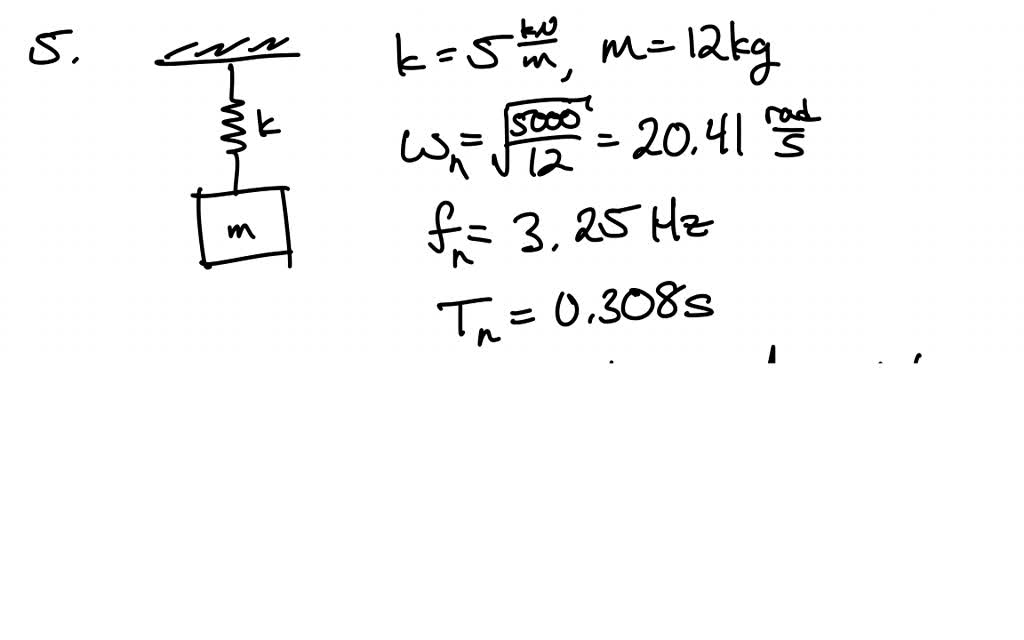 5.
k = 5 kN/m, m = 12kg
k
ωₙ = √(5000/12) = 20.41 rad/s
m
fₙ = 3.25 Hz
Tₙ = 0.308s